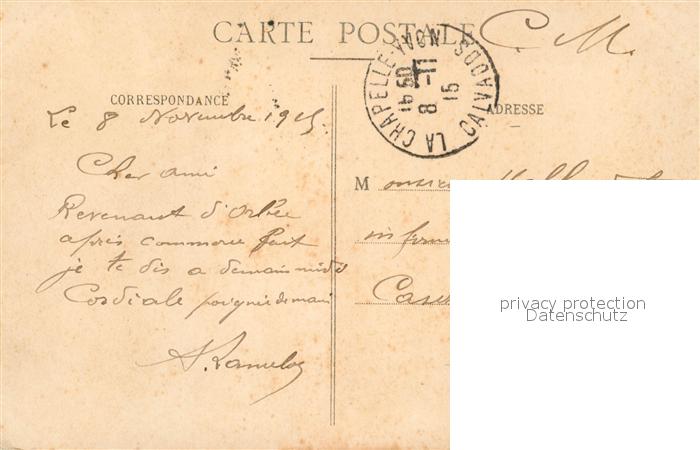 CARTE POSTALE C. M.
LA CHAPELLE-YVON CALVADOS
16 50
8 - 11
15
CORRESPONDANCE
ADRESSE
Le 8 Novembre 1915.
Cher ami
Revenant d'Orbec
après commerce fait
je te dis a demain midi
Cordiale poignée de main
M onsieur
infirm
Case
privacy protection
Datenschutz